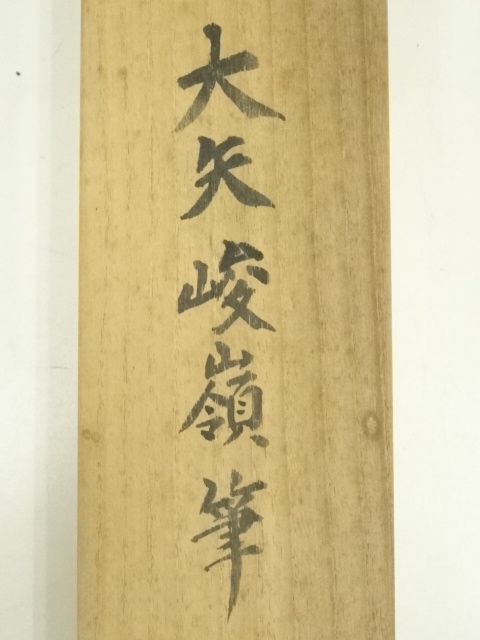 大矢峻嶺筆